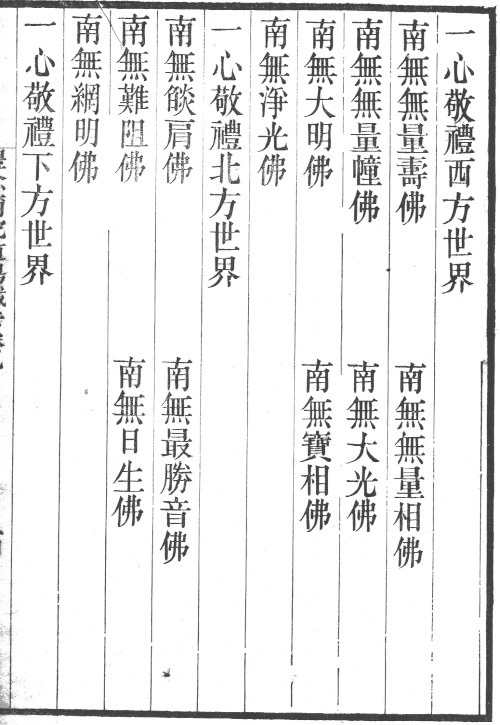 一心敬禮西方世界
南無無量壽佛　南無無量相佛
南無無量幢佛　南無大光佛
南無大明佛　南無寶相佛
南無淨光佛
一心敬禮北方世界
南無燄肩佛　南無最勝音佛
南無難阻佛　南無日生佛
南無網明佛
一心敬禮下方世界